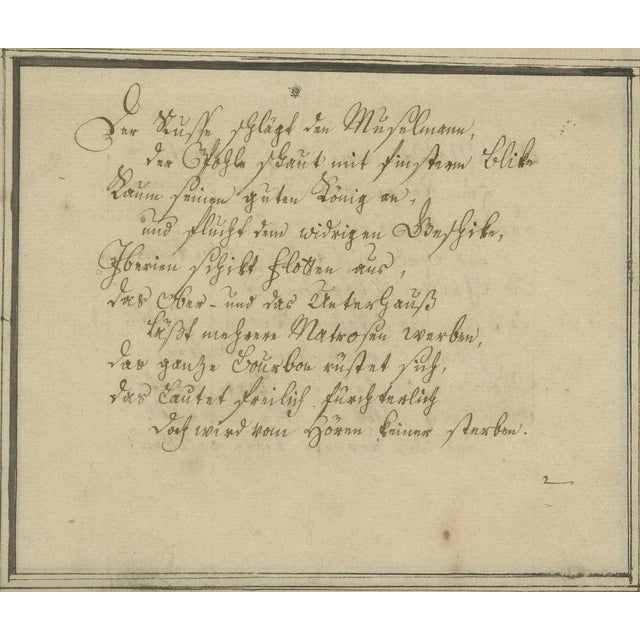 Der Russe schlägt den Muselmann,
der Pohle schaut mit finsterm Blike
Kaum seinen guten König an,
und flucht dem widrigen Geschike,
Iberien schikt Flotten aus,
das Ober- und das Unterhauß
läßt mehrere Matrosen werben,
das ganze Bourbon rüstet sich,
das lautet freilich fürchterlich
doch wird vom Hören keiner sterben.